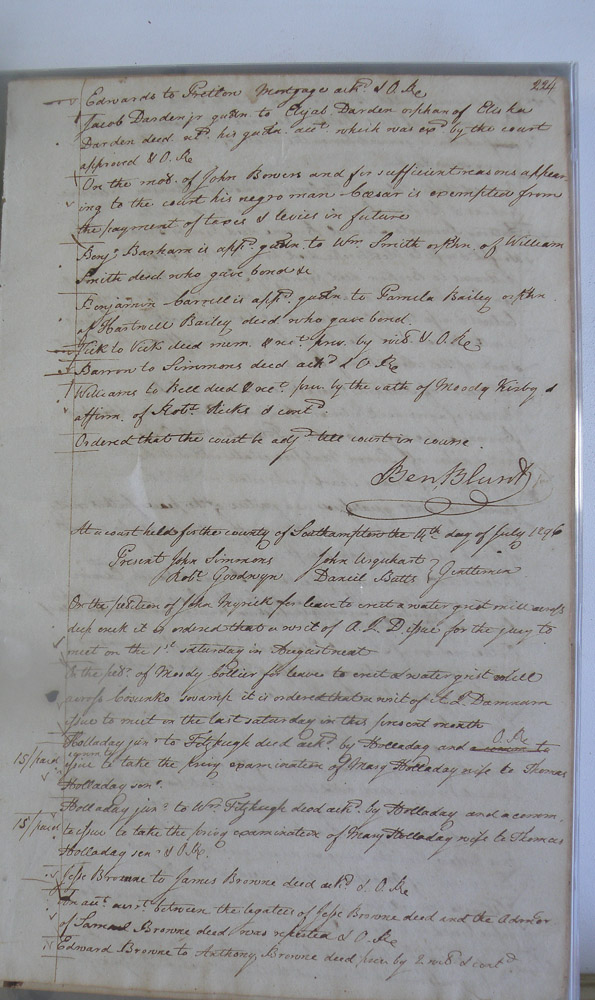 224
Edwards to Pretlow Mortgage ackd & O. Re
Jacob Darden jr gudn to Elijah Darden orphan of Elisha
Darden deed retd his gudn acct which was exd by the court
approved & O. Re
On the mon. of John Bowers and for sufficient reasons appear
ing to the court his negro man Cæsar is exempted from
the payment of taxes & levies in future
Benja Barham is appd gudn to Wm Smith orphn of William
Smith decd who gave bond &c
Benjamin Carrell is appd gudn to Pamela Bailey orphn
of Hartwell Bailey decd who gave bond
Vick to Vick deed mem. & rect prov. by wits & O. Re
Barrow to Simmons deed ackd & O Re
Williams to Bell deed & rect prov. by the oath of Moody Kirby &
affirm. of Robt Ricks & contd
Ordered that the court be adjd till court in course
Ben. Blunt
At a court held for the county of Southampton the 14th day of July 1796
Present John Simmons John Urquhart
Robt Goodwyn Daniel Batts } Gentlemen
On the petition of John Myrick for leave to erect a water grist mill across
deep creek it is ordered that a writ of A. Q. D issue for the jury to
meet on the 1st saturday in August next
On the petn of Moody Collier for leave to erect a water grist mill
across Cosunko swamp it is ordered that a writ of A Q. Damnum
issue to meet on the last saturday in this present month
O. Re
Holladay junr to Fitzhugh deed ackd by Holladay and a comm to
15/ paid issue to take the privy examination of Mary Holladay wife to Thomas
Holladay senr
Holladay junr to Wm Fitzhugh deed ackd by Holladay and a comm.
15/ paid to issue to take the privy examination of Mary Holladay wife to Thomas
Holladay senr & O Re.
Jesse Browne to James Browne deed ackd & O. Re
An acct currt between the legatees of Jesse Browne decd and the Admor
of Samuel Browne decd was returned & O. Re
Edward Browne to Anthony Browne deed prov. by 2 wits & contd